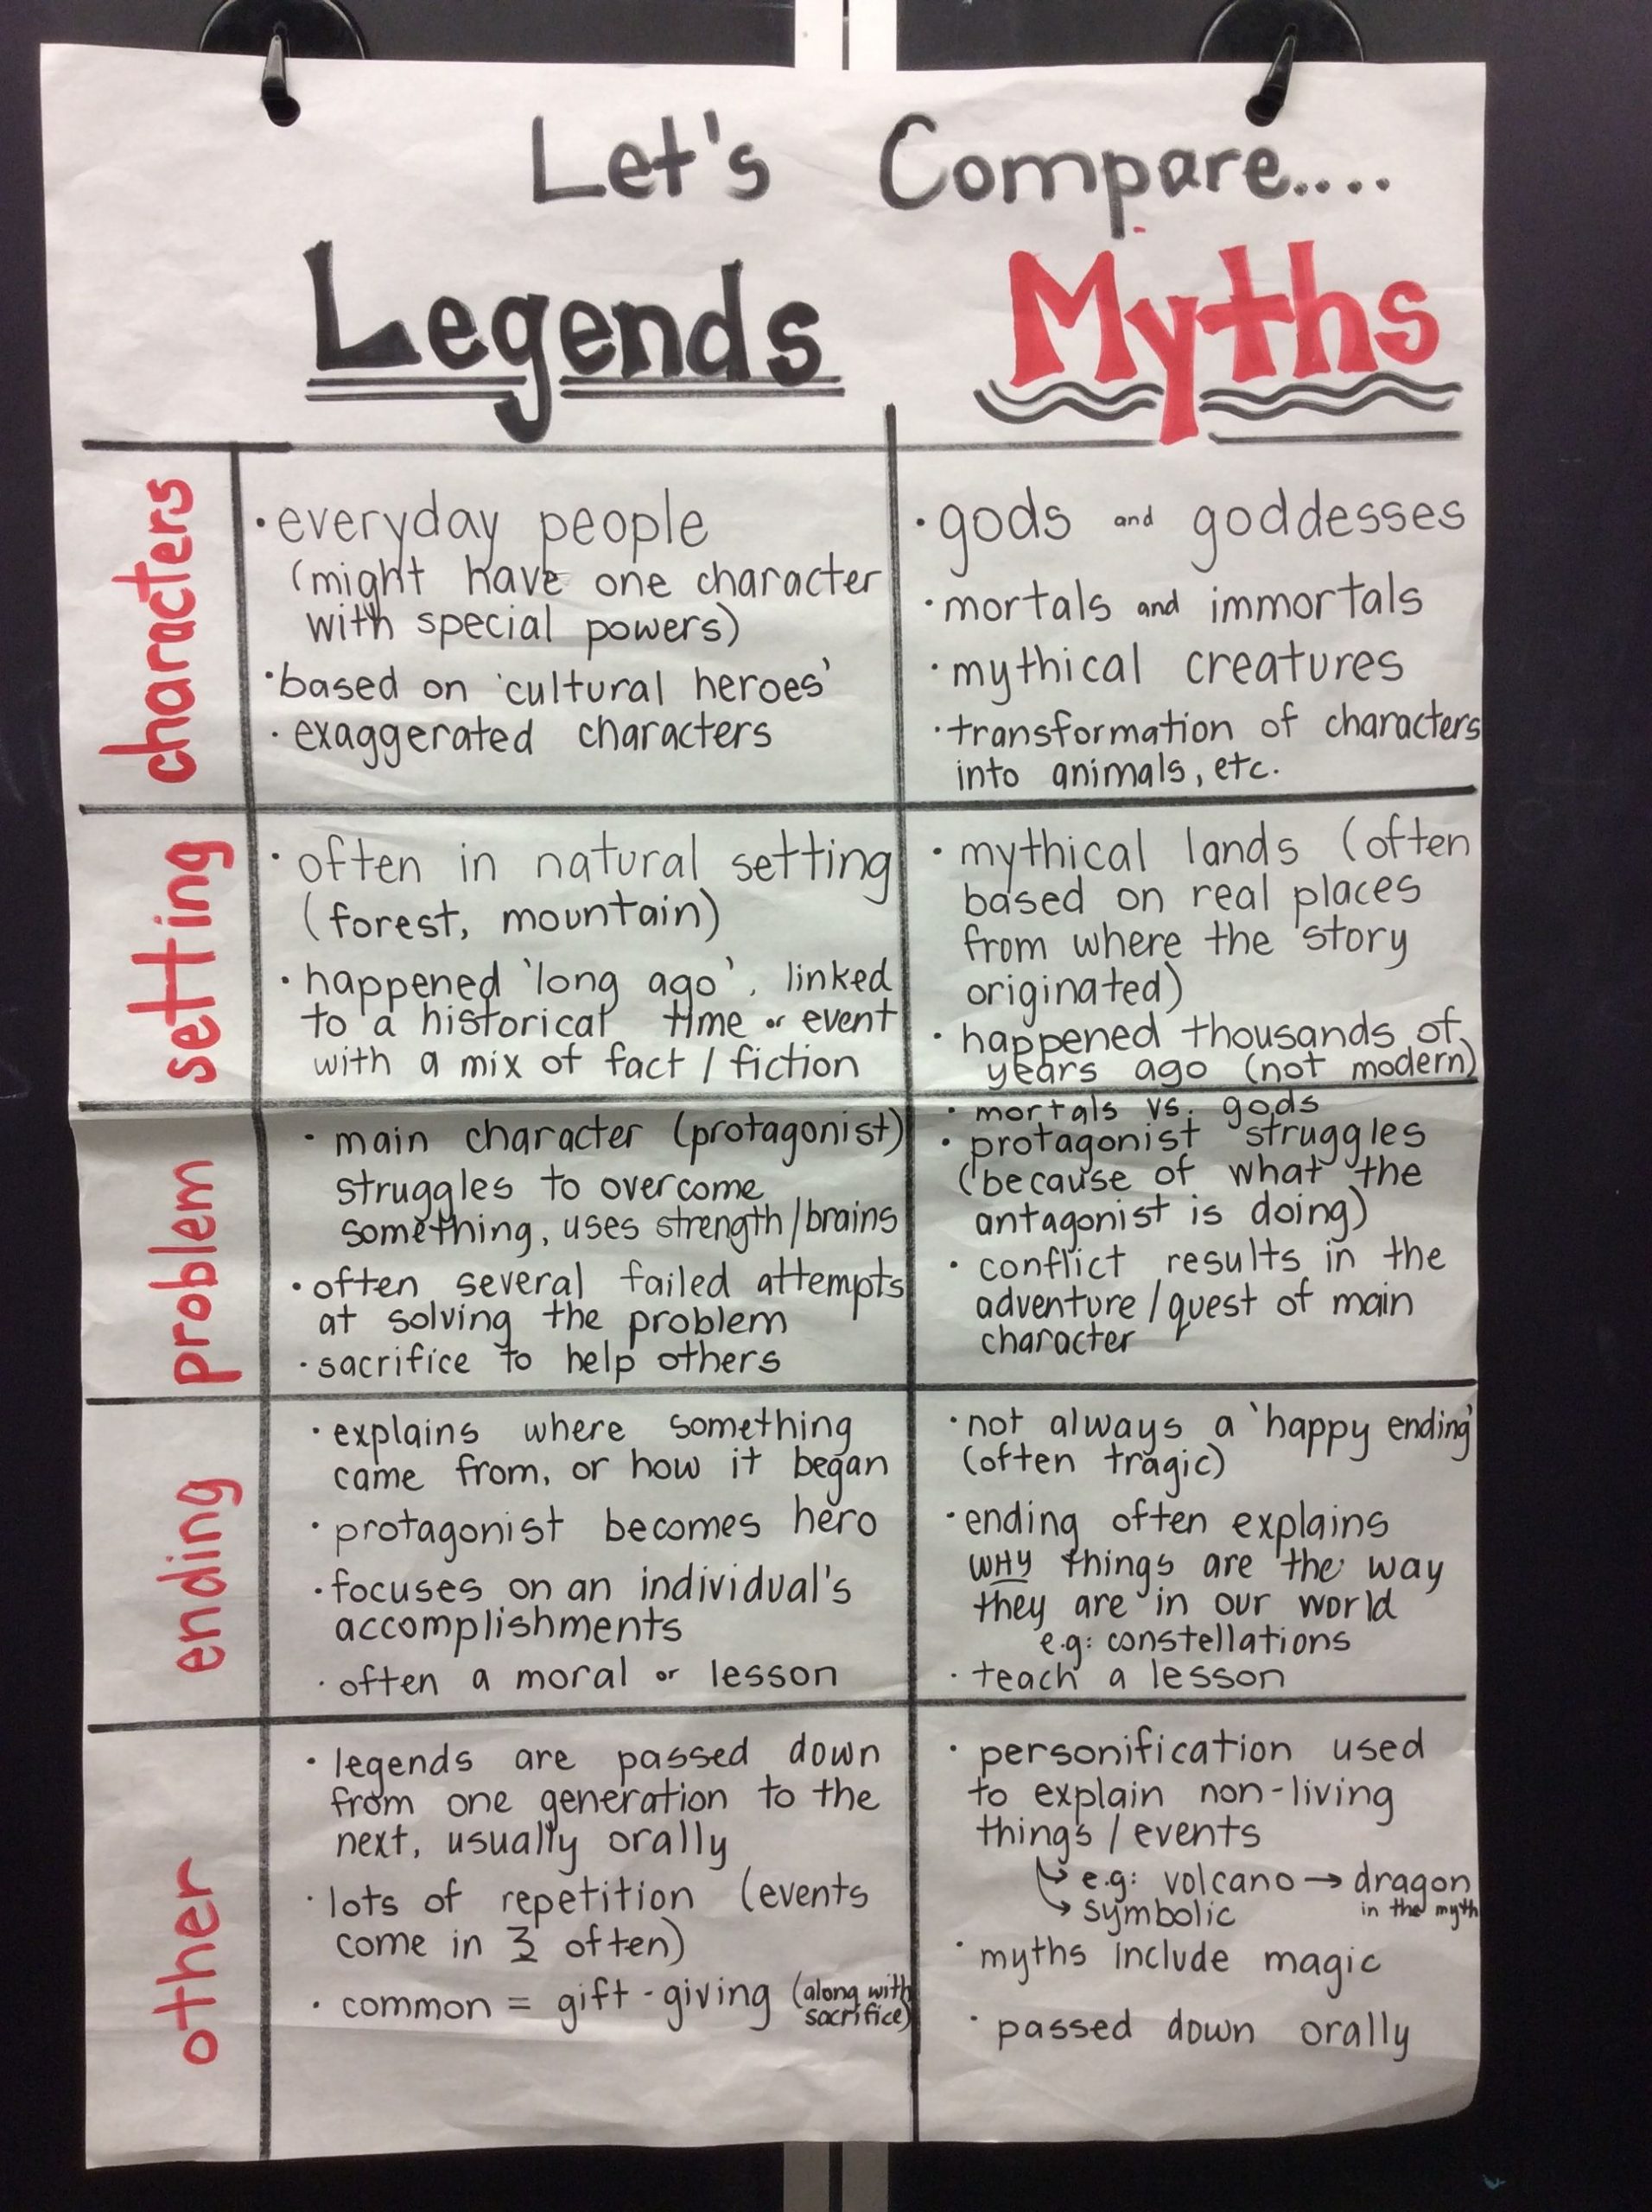 Let's Compare....
Legends
Myths
characters
• everyday people
(might have one character
with special powers)
• based on 'cultural heroes'
• exaggerated characters
• gods and goddesses
• mortals and immortals
• mythical creatures
• transformation of characters
into animals, etc.
setting
• often in natural setting
(forest, mountain)
• happened 'long ago', linked
to a historical time or event
with a mix of fact / fiction
• mythical lands (often
based on real places
from where the story
originated)
• happened thousands of
years ago (not modern)
problem
• main character (protagonist)
struggles to overcome
something, uses strength/brains
• often several failed attempts
at solving the problem
• sacrifice to help others
• mortals vs. gods
• protagonist struggles
(because of what the
antagonist is doing)
• conflict results in the
adventure / quest of main
character
ending
• explains where something
came from, or how it began
• protagonist becomes hero
• focuses on an individual's
accomplishments
• often a moral or lesson
• not always a 'happy ending'
(often tragic)
• ending often explains
WHY things are the way
they are in our world
e.g: constellations
• teach a lesson
other
• legends are passed down
from one generation to the
next, usually orally
• lots of repetition (events
come in 3 often)
• common = gift-giving (along with
sacrifice)
• personification used
to explain non-living
things / events
↳ e.g: volcano → dragon
in the myth
↳ symbolic
• myths include magic
• passed down orally